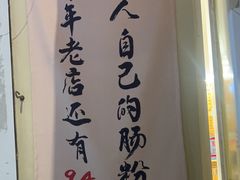 人自己的肠粉
年老店还有
94